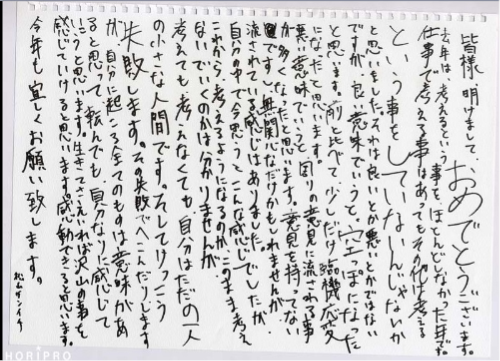 皆様、明けまして、おめでとうございます。
去年は、考えるという事を、ほとんどしなかった年で
仕事で考える事はあってもその他で考える
という事をしていないんじゃないか
と思いました。それは良いとか悪いとかではない
ですが、良い意味でいうと、空っぽになった
と思います。前と比べて、少しだけ臨機応変
になったと思います。
悪い意味でいうと、回りの意見に流される事
が多くなったと思います。意見を持ってな
いです。無関心なだけかもしれませんが、
流されている感じはありました。
自分の中で今思うとこんな感じでしたが、
これから、考えるようになるのか、このまま考え
ないでいくのかは分かりませんが、
考えても考えなくても自分はただの一人
の小さな人間です。そしてけっこう
失敗します。その失敗でへこんだりします
が、自分に起こる全てのものは意味があ
ると思って、転んでも、自分なりに感じて
いこうと思います。生きてさえいれば沢山の事を
感じていけると思います。感動できると思います。
今年も宜しくお願い致します。
松山ケンイチ
HORIPRO